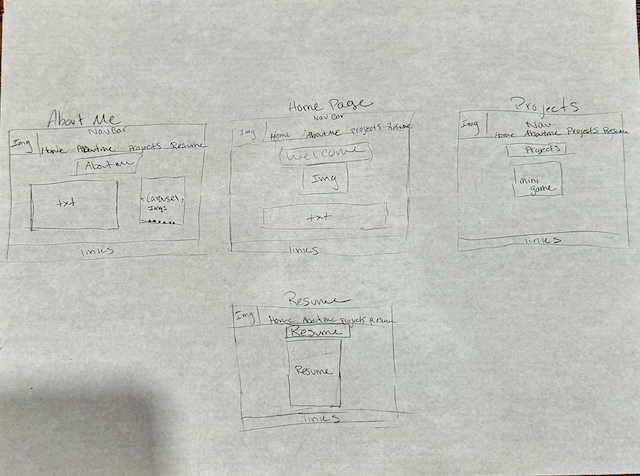 About Me
NavBar
Img Home About me Projects Resume
About me
txt
Carousel
Imgs
links
Home Page
Nav Bar
Img Home About me projects Resume
Welcome
Img
txt
links
Projects
Img Nav
Home About me Projects Resume
Projects
mini
game
links
Resume
Img Home About me Projects Resume
Resume
Resume
links